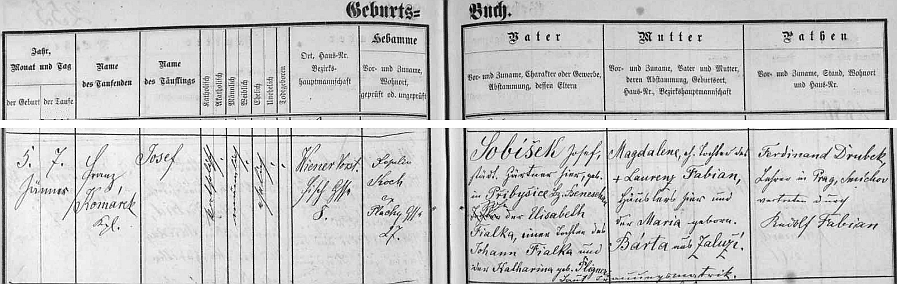 Geburts=
Buch.
Jahr,
Monat und Tag
der Geburt
der Taufe
Name
des Taufenden
Name
des Täuflings
Katholisch
Akatholisch
Männlich
Weiblich
Ehelich
Unehelich
Todtgeboren
Ort, Haus-Nr.
Bezirks-
hauptmannschaft
Hebamme
Vor- und Zuname,
Wohnort,
geprüft od. ungeprüft
Vater
Vor- und Zuname, Charakter oder Gewerbe,
Abstammung, dessen Eltern
Mutter
Vor- und Zuname, Vater und Mutter,
deren Abstammung, Geburtsort,
Haus-Nr., Bezirkshauptmannschaft
Pathen
Vor- und Zuname, Stand, Wohnort
und Haus-Nr.
5.
7.
Jänner
Franz
Komárek
Kpl.
Josef
katholisch
männlich
ehelich
Wiener Vorst.
8.
Rosalia
Koch
27.
Sobíšek Josef,
städt. Gärtner hier, geb.
in Přibyšice Bz. Beneschau,
der Elisabeth
Fialka, einer Tochter des
Johann Fialka und
der Katharina geb.
Magdalena, e. Tochter des
+ Laurenz Fabian,
Häuslers hier und
der Maria geborn.
Bárta aus Zaluží.
Laut Trauungsmatrik.
Ferdinand Drubek,
Lehrer in Prag, Smichov
vertreten durch
Rudolf Fabian